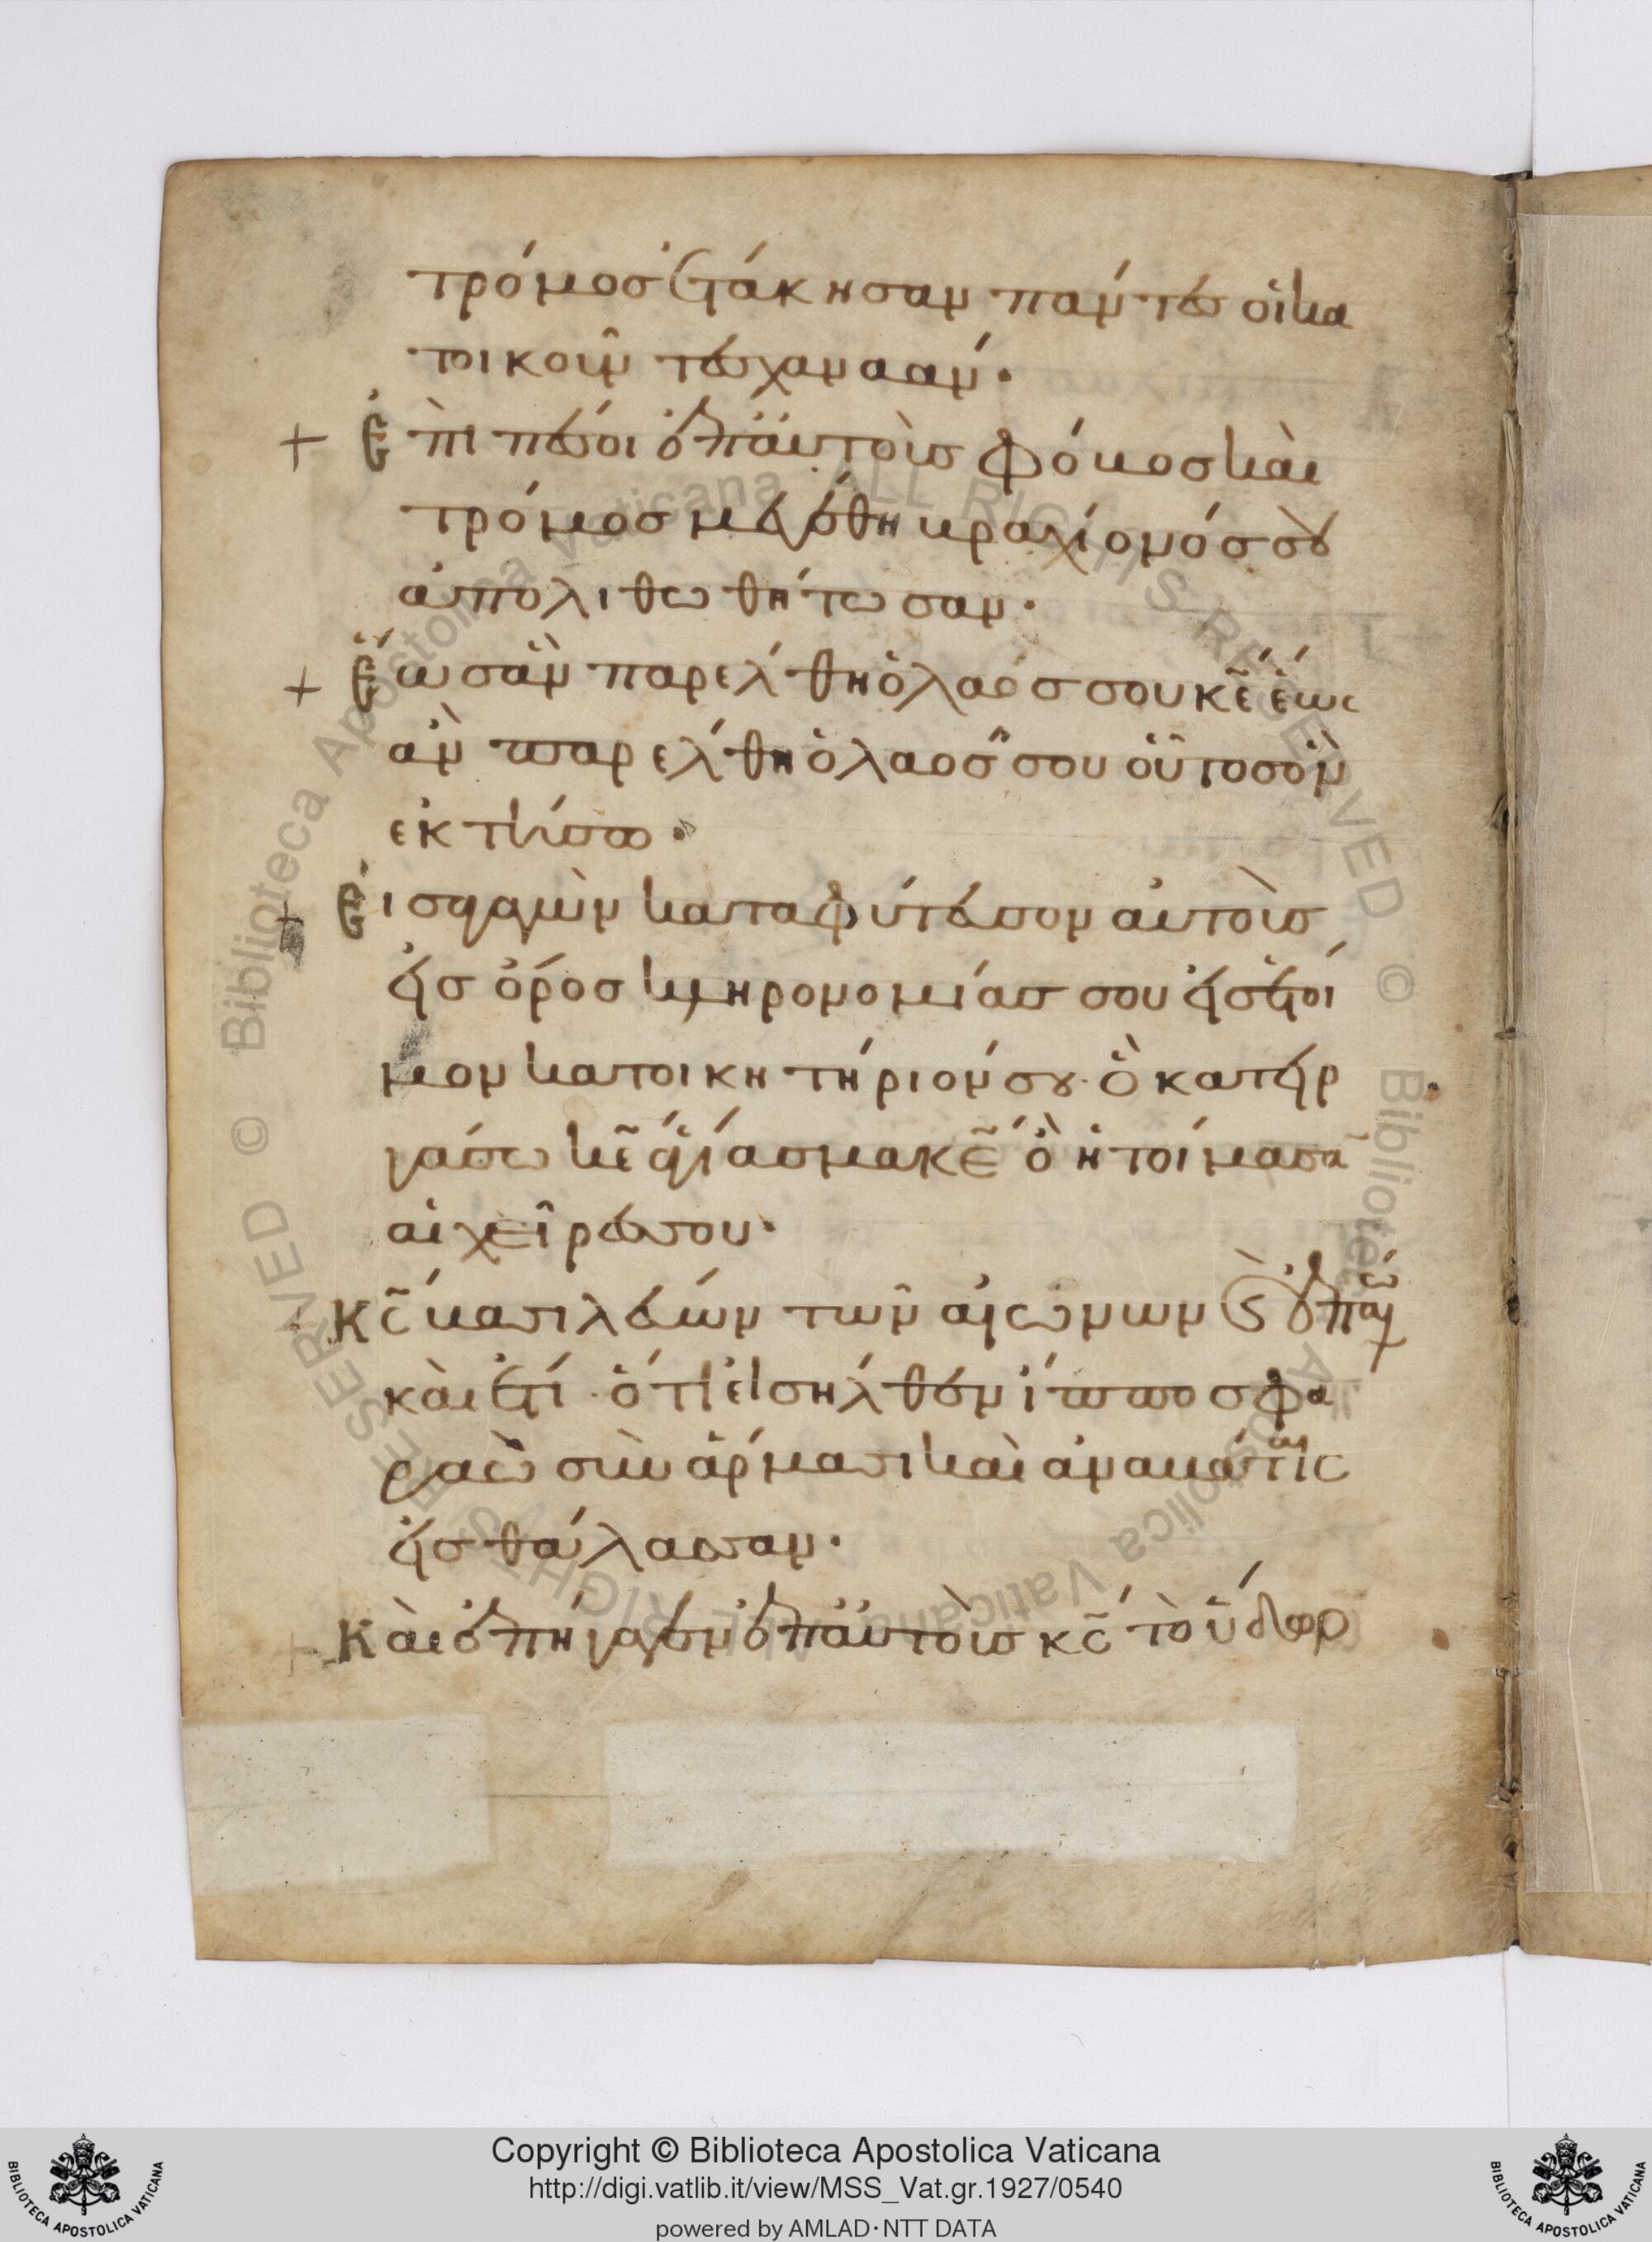 τρόμοσ ἐτάκησαν πάντεσ οἱ κα
τοικοῦν τεσ χανααάν.
+ Ἐπὶ πέσοι ἐπ ἀυτοὺσ φόβοσ κὰι
τρόμοσ μεγέθη βραχίονόσ σου
ἀπολιθωθήτωσαν.
+ Ἕωσ ἂν παρέλθη ὁ λαόσ σου κε ἕωσ
ἂν παρέλθη ὁ λαόσ σου οὗτοσ ὃν
ἐκτήσω.
+ Εἰσαγαγὼν καταφύτευσον αὐτοὺσ
εἰσ ὄροσ κληρονομίασ σου εἰσ ἕτοι
μον κατοικητήριόν σου. ὃ κατείρ
γάσω κε ἁγίασμα κε ὃ ἡτοίμασαν
αἱ χεῖρέσ σου.
κσ βασιλεύων τῶν αἰώνων κ ἐπ αἰῶν
κὰι ἔτι. ὅτι εἰσῆλθεν ἵπποσ φα
ραὼ σὺν ἅρμασι κὰι ἀναβάταισ
εἰσ θάλασσαν.
Κὰι ἐπήγαγεν ἐπ ἀυτοὺσ κσ τὸ ὕδωρ
Copyright © Biblioteca Apostolica Vaticana
http://digi.vatlib.it/view/MSS_Vat.gr.1927/0540
powered by AMLAD·NTT DATA
BIBLIOTECA APOSTOLICA VATICANA
BIBLIOTECA APOSTOLICA VATICANA